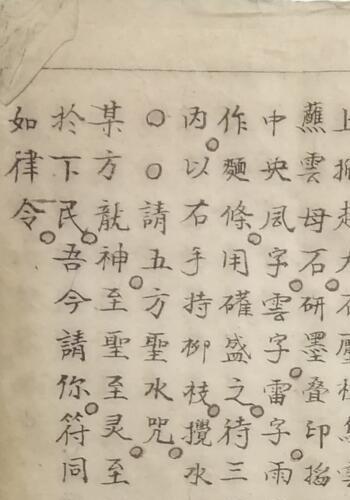 上
蘸雲母石研墨叠印搯
中央風字雲字雷字雨
作麵條用礶盛之待三
内以右手持柳枝攪水
○○請五方聖水咒
某方龍神至聖至灵至
於下民吾今請你符同
如律令